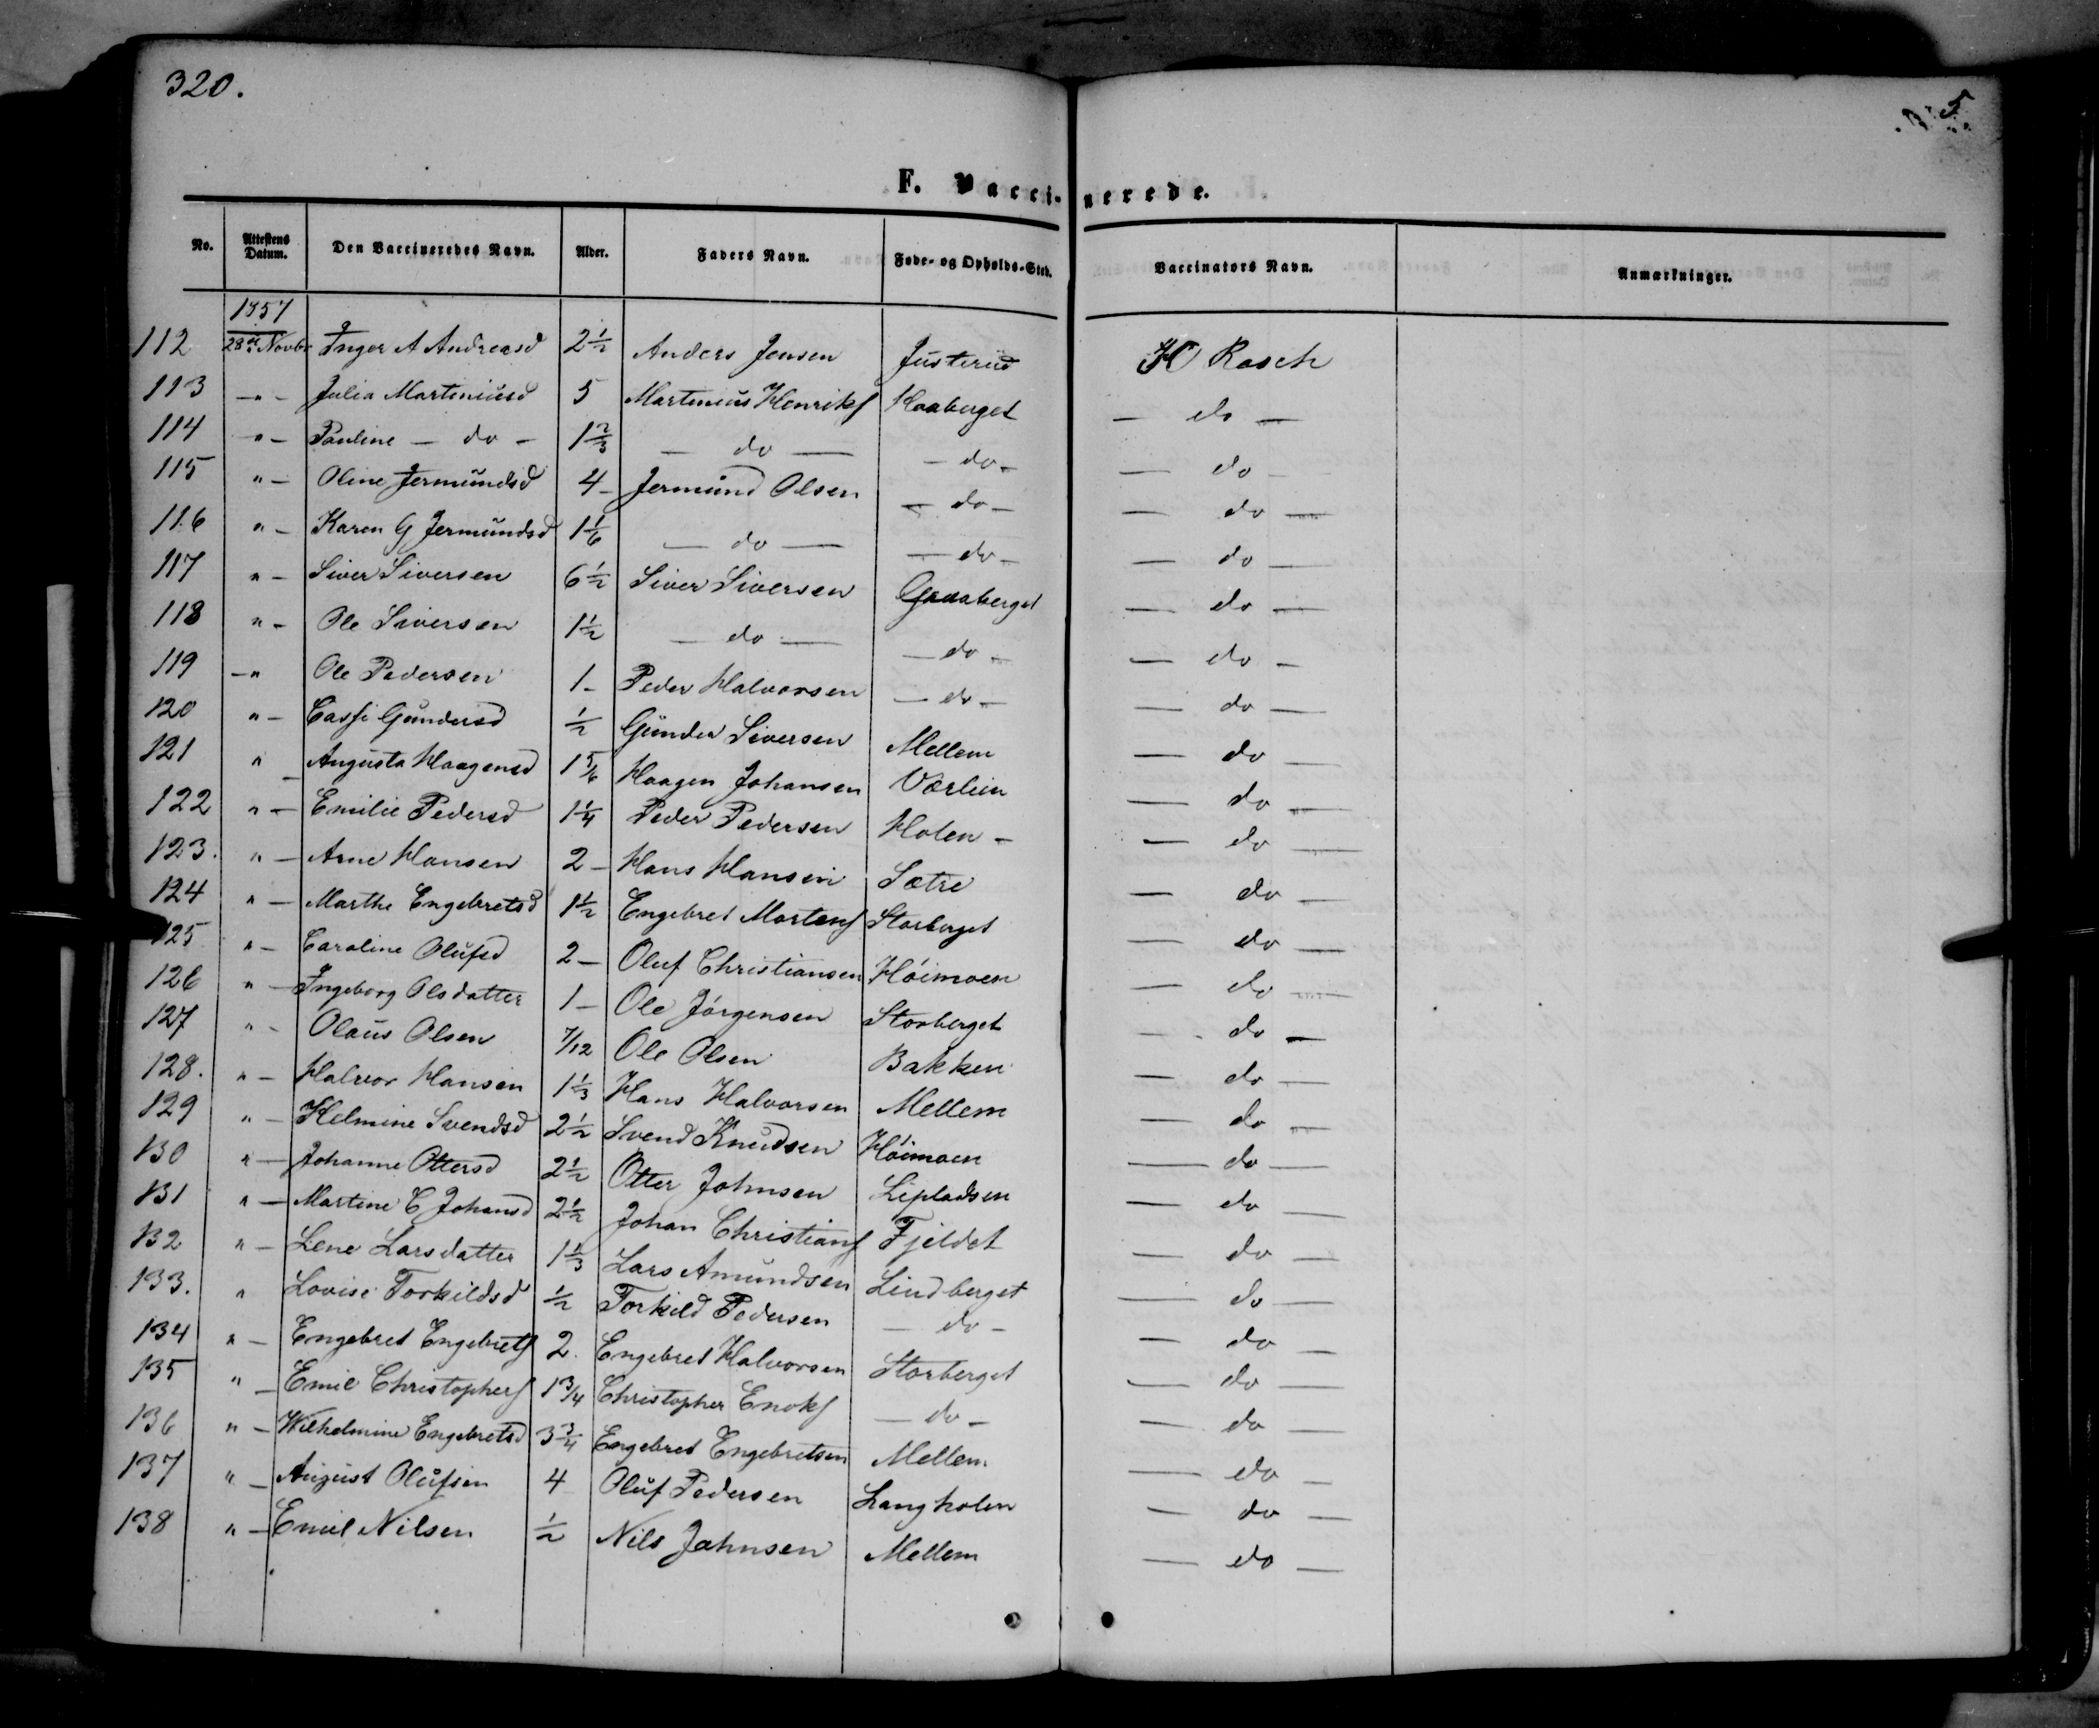 320.
5
F. Vacci- nerede.
No. Attestens Datum. Den Vaccineredes Navn. Alder. Faders Navn. Føde- og Opholds-Sted. Vaccinators Navn. Anmærkninger.
1857
112 28de Novbr Inger A Andreasd 2½ Anders Jensen Justerud H Rasch
113 -"- Julia Martiniusd 5 Martinius Henriks Haaberget - do -
114 "- Pauline - do - 1⅔ - do - - do - - do -
115 "- Oline Jermundsd 4- Jermund Olsen - do - - do -
116 "- Karen G Jermundsd 1⅙ - do - - do - - do -
117 "- Siver Siversen 6½ Siver Siversen Graaberget - do -
118 "- Ole Siversen 1½ - do - - do - - do -
119 -" Ole Pedersen 1- Peder Halvorsen - do - - do -
120 "- Gundersd ½ Gunder Siversen Mellem - do -
121 " Augusta Haagensd 1⅚ Haagen Johansen Værlien - do -
122 "- Emilie Pedersd 1¼ Peder Pedersen Holen - - do -
123. "- Arne Hansen 2- Hans Hansen Sætre - do -
124 "- Marthe Engebretsd 1½ Engebret Martens Storberget - do -
125 "- Caroline Olufsd 2- Oluf Christiansen Høimoen - do -
126 "- Ingeborg Olsdatter 1- Ole Jörgensen Storberget - do -
127 "- Olaus Olsen 7/12 Ole Olsen Bakken - do -
128. "- Halvor Hansen 1⅓ Hans Halvorsen Mellem - do -
129 "- Helmine Svendsd 2½ Svend Knudsen Høimoen - do -
130 "- Johanne Ottersd 2½ Otter Johnsen Lipladsen - do -
131 "- Martine C Johansd 2½ Johan Christians Fjeldet - do -
132 "- Lene Larsdatter 1⅓ Lars Amundsen Lindberget - do -
133. " Lovise Torkildsd ½ Torkild Pedersen - do - - do -
134 "- Engebret Engebrets 2. Engebret Halvorsen Storberget - do -
135 "- Emil Christophers 1¾ Christopher Enoks - do - - do -
136 "- Wilhelmine Engebretsd 3¾ Engebret Engebretsen Mellem - do -
137 "- August Olufsen 4 Oluf Pedersen Langholen - do -
138 "- Emil Nilsen ½ Nils Johnsen Mellem - do -